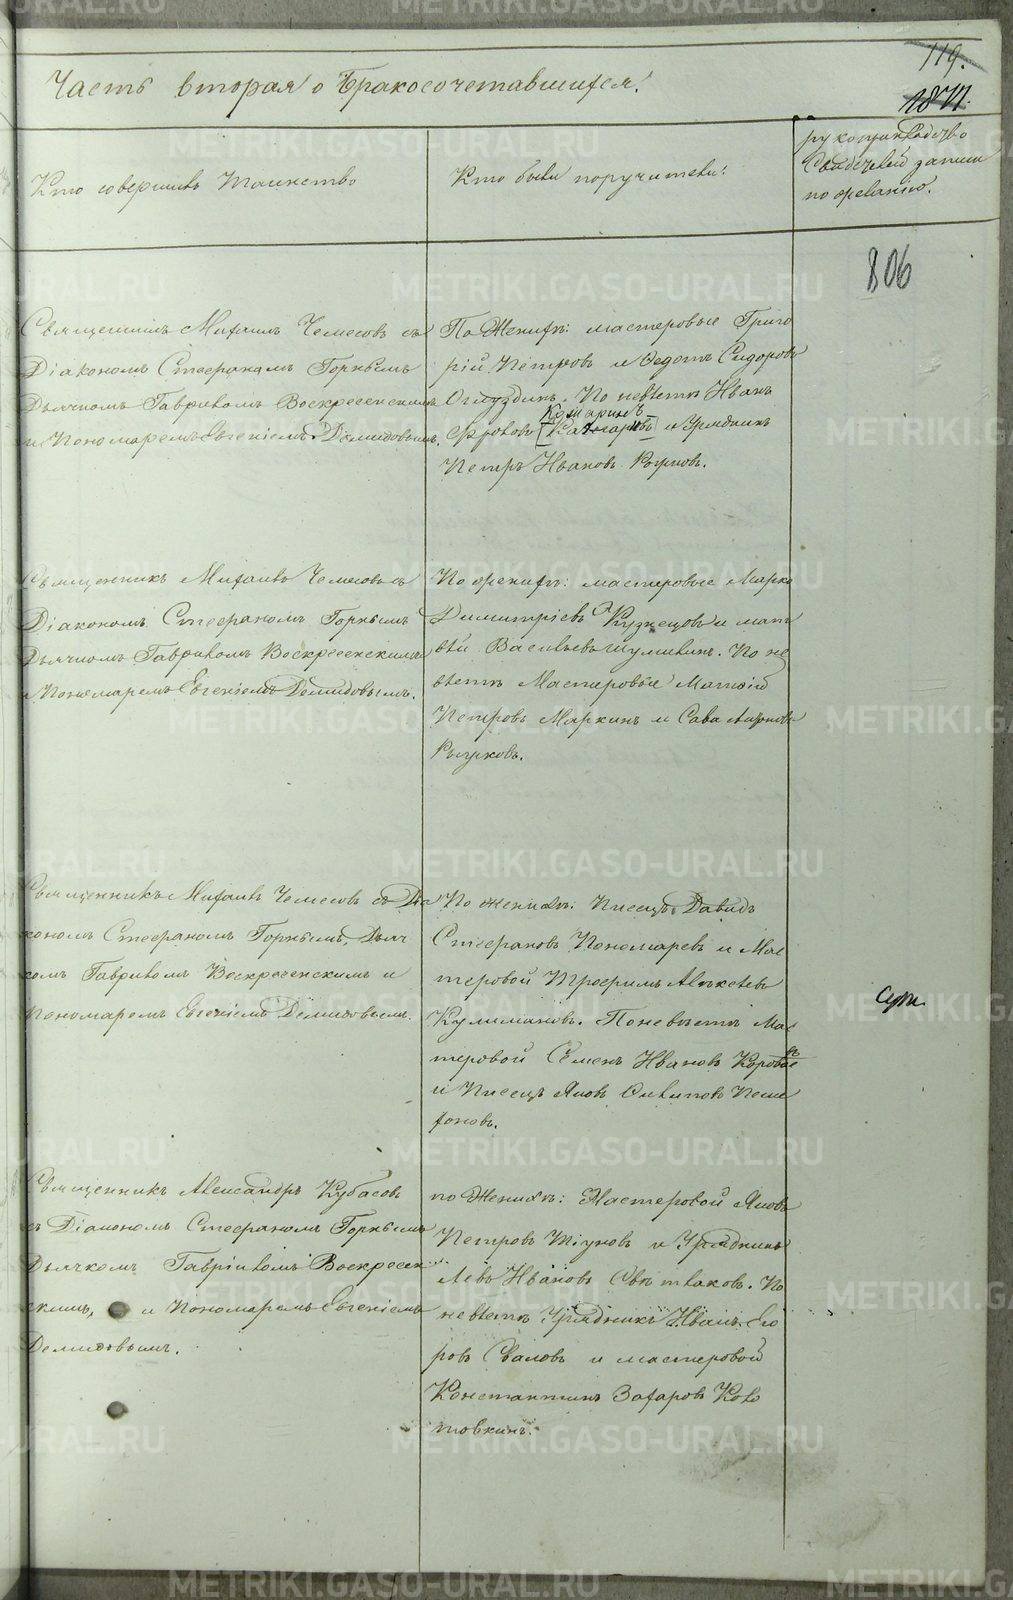 119.
Часть вторая о бракосочетавшихся.
Кто совершивъ таинство
Кто были поручители:
рукоприкладство
свидѣтелей записи
по желанію.
806
Священникъ Михаилъ Чемесовъ съ
Діакономъ Стефаномъ Горнымъ
Дьячкомъ Гавриломъ Воскресенскимъ
и Пономаремъ Евгеніемъ Демидовымъ.
По Женихѣ: мастеровые Григо
рій Петровъ и Федотъ Сидоровъ
По невѣстѣ Иванъ
Комаринъ
Фроловъ и Урядникъ
Петръ Ивановъ
Священникъ Михаилъ Чемесовъ съ
Діакономъ Стефаномъ Горнымъ
Дьячкомъ Гавриломъ Воскресенскимъ
и Пономаремъ Евгеніемъ Демидовымъ.
По женихѣ: мастеровые Марко
Димитріевъ Кузнецовъ и мат
вѣй Васильевъ Шумилинъ. По не
вѣстѣ Мастеровые Матвій
Петровъ Маркинъ и Сава
Рычковъ.
Священникъ Михаилъ Чемесовъ съ Діа
кономъ Стефаномъ Горнымъ, Дьяч
комъ Гавриломъ Воскресенскимъ и
Пономаремъ Евгеніемъ Демидовымъ.
По женихѣ: Писецъ Давидъ
Стефановъ Пономаревъ и Мас
теровой Трофимъ Алексѣевъ
По невѣстѣ Мас
теровой Семенъ Ивановъ
и Писецъ Яковъ Осиповъ
Священникъ Александръ Кубасовъ
съ Діакономъ Стефаномъ Горнымъ
Дьячкомъ Гавріиломъ Воскресен
скимъ, и Пономаремъ Евгеніемъ
Демидовымъ.
по Женихѣ: Мастеровой Яковъ
Петровъ Тіуновъ и Урядникъ
Левъ Ивановъ Свѣтлаковъ. По
невѣстѣ Урядникъ Иванъ Его
ровъ и мастеровой
Константинъ Захаровъ Коло
товкинъ.
METRIKI.GASO-URAL.RU